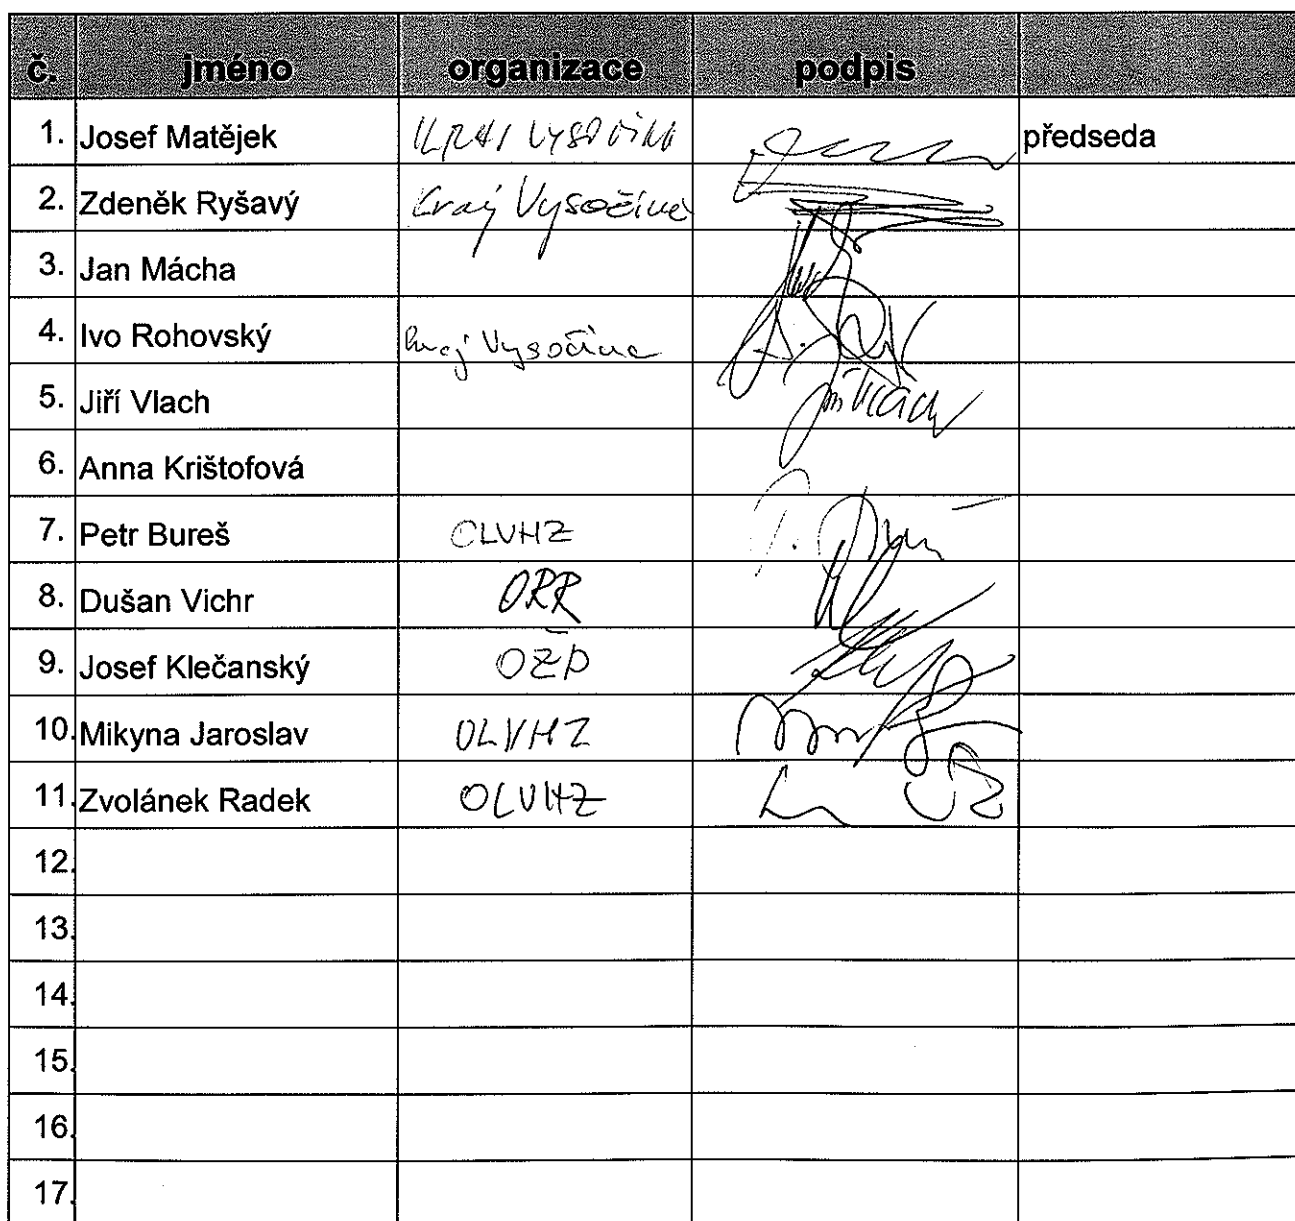 č. jméno organizace podpis
1. Josef Matějek KRAJ VYSOČINA předseda
2. Zdeněk Ryšavý Kraj Vysočina
3. Jan Mácha
4. Ivo Rohovský Kraj Vysočina
5. Jiří Vlach Jiří Vlach
6. Anna Krištofová
7. Petr Bureš OLVHZ
8. Dušan Vichr ORR
9. Josef Klečanský OŽP
10. Mikyna Jaroslav OLVHZ
11. Zvolánek Radek OLVHZ
12.
13.
14.
15.
16.
17.